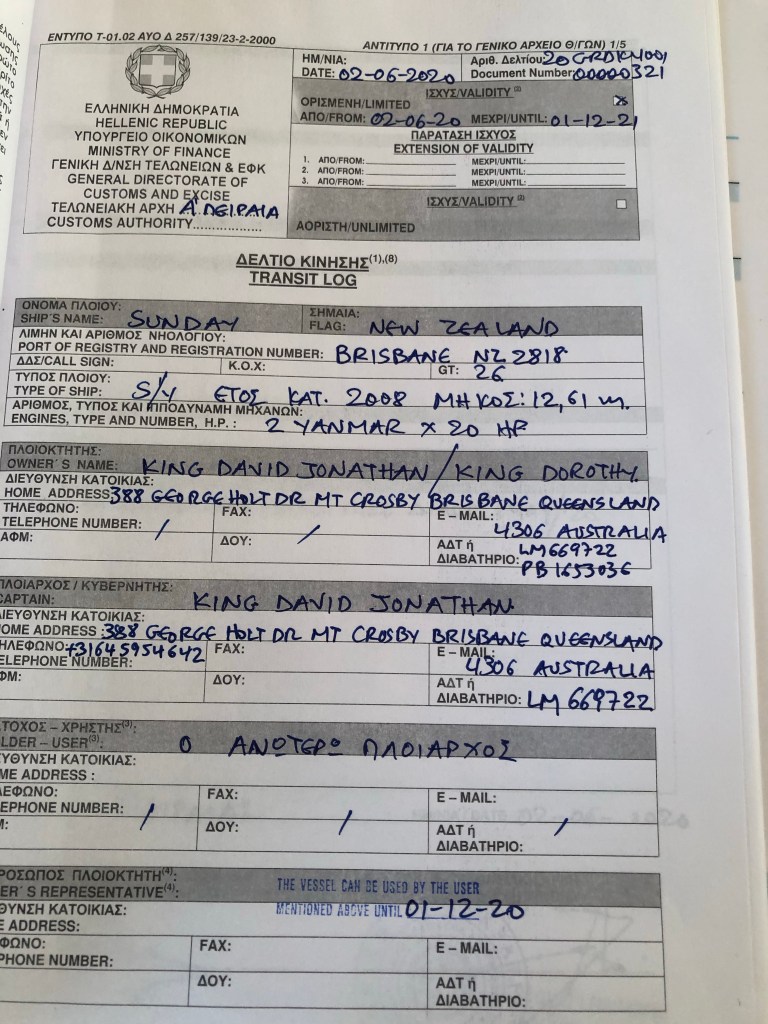 ΕΝΤΥΠΟ Τ-01.02 ΑΥΟ Δ 257/139/23-2-2000
ΑΝΤΙΤΥΠΟ 1 (ΓΙΑ ΤΟ ΓΕΝΙΚΟ ΑΡΧΕΙΟ Θ/ΓΩΝ) 1/5
ΕΛΛΗΝΙΚΗ ΔΗΜΟΚΡΑΤΙΑ
HELLENIC REPUBLIC
ΥΠΟΥΡΓΕΙΟ ΟΙΚΟΝΟΜΙΚΩΝ
MINISTRY OF FINANCE
ΓΕΝΙΚΗ Δ/ΝΣΗ ΤΕΛΩΝΕΙΩΝ & ΕΦΚ
GENERAL DIRECTORATE OF
CUSTOMS AND EXCISE
ΤΕΛΩΝΕΙΑΚΗ ΑΡΧΗ Α' ΠΕΙΡΑΙΑ
CUSTOMS AUTHORITY..................
ΗΜ/ΝΙΑ:
DATE: 02-06-2020
Αριθ. Δελτίου: 20GRDKM001
Document Number: 00000321
ΙΣΧΥΣ/VALIDITY (2)
ΟΡΙΣΜΕΝΗ/LIMITED
ΑΠΟ/FROM: 02-06-20 ΜΕΧΡΙ/UNTIL: 01-12-21
ΠΑΡΑΤΑΣΗ ΙΣΧΥΟΣ
EXTENSION OF VALIDITY
1. ΑΠΟ/FROM: ΜΕΧΡΙ/UNTIL:
2. ΑΠΟ/FROM: ΜΕΧΡΙ/UNTIL:
3. ΑΠΟ/FROM: ΜΕΧΡΙ/UNTIL:
ΙΣΧΥΣ/VALIDITY (2)
ΑΟΡΙΣΤΗ/UNLIMITED
ΔΕΛΤΙΟ ΚΙΝΗΣΗΣ(1),(8)
TRANSIT LOG
ΟΝΟΜΑ ΠΛΟΙΟΥ:
SHIP'S NAME: SUNDAY
ΣΗΜΑΙΑ:
FLAG: NEW ZEALAND
ΛΙΜΗΝ ΚΑΙ ΑΡΙΘΜΟΣ ΝΗΟΛΟΓΙΟΥ:
PORT OF REGISTRY AND REGISTRATION NUMBER: BRISBANE NZ 2818
ΔΔΣ/CALL SIGN: Κ.Ο.Χ: GT: 26
ΤΥΠΟΣ ΠΛΟΙΟΥ:
TYPE OF SHIP: S/Y ΕΤΟΣ ΚΑΤ. 2008 ΜΗΚΟΣ: 12,61 m.
ΑΡΙΘΜΟΣ, ΤΥΠΟΣ ΚΑΙ ΙΠΠΟΔΥΝΑΜΗ ΜΗΧΑΝΩΝ:
ENGINES, TYPE AND NUMBER, H.P. : 2 YANMAR x 20 HP
ΠΛΟΙΟΚΤΗΤΗΣ:
OWNER'S NAME: KING DAVID JONATHAN / KING DOROTHY
ΔΙΕΥΘΥΝΣΗ ΚΑΤΟΙΚΙΑΣ:
HOME ADDRESS 388 GEORGE HOLT DR MT CROSBY BRISBANE QUEENSLAND
ΤΗΛΕΦΩΝΟ: FAX: E – MAIL: 4306 AUSTRALIA
TELEPHONE NUMBER: / /
ΑΦΜ: ΔΟΥ: ΑΔΤ ή LM669722
ΔΙΑΒΑΤΗΡΙΟ: PB1653036
ΠΛΟΙΑΡΧΟΣ / ΚΥΒΕΡΝΗΤΗΣ:
CAPTAIN: KING DAVID JONATHAN
ΔΙΕΥΘΥΝΣΗ ΚΑΤΟΙΚΙΑΣ:
HOME ADDRESS : 388 GEORGE HOLT DR MT CROSBY BRISBANE QUEENSLAND
ΤΗΛΕΦΩΝΟ: +31645954642 FAX: E – MAIL: 4306 AUSTRALIA
TELEPHONE NUMBER:
ΦΜ: ΔΟΥ: ΑΔΤ ή
ΔΙΑΒΑΤΗΡΙΟ: LM 669722
ΤΟΧΟΣ – ΧΡΗΣΤΗΣ(3):
LDER – USER(3): Ο ΑΝΩΤΕΡΩ ΠΛΟΙΑΡΧΟΣ
ΥΘΥΝΣΗ ΚΑΤΟΙΚΙΑΣ:
ME ADDRESS :
ΛΕΦΩΝΟ: FAX: E – MAIL:
EPHONE NUMBER: /
Μ: ΔΟΥ: / ΑΔΤ ή /
ΔΙΑΒΑΤΗΡΙΟ:
ΡΟΣΩΠΟΣ ΠΛΟΙΟΚΤΗΤΗ(4):
ER'S REPRESENTATIVE(4): THE VESSEL CAN BE USED BY THE USER
ΘΥΝΣΗ ΚΑΤΟΙΚΙΑΣ: MENTIONED ABOVE UNTIL 01-12-20
E ADDRESS:
ΦΩΝΟ: FAX: E – MAIL:
PHONE NUMBER:
ΔΟΥ: ΑΔΤ ή
ΔΙΑΒΑΤΗΡΙΟ: